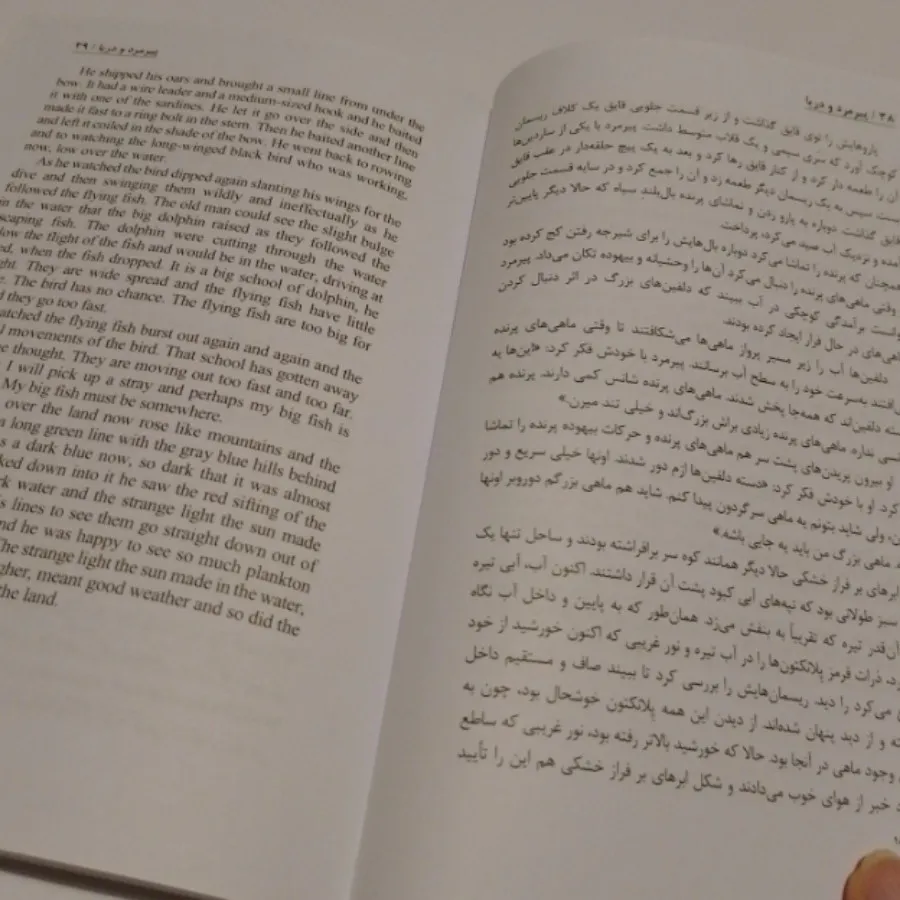 پیرمرد و دریا / ۳۹
He shipped his oars and brought a small line from under the
bow. It had a wire leader and a medium-sized hook and he baited
it with one of the sardines. He let it go over the side and then
made it fast to a ring bolt in the stern. Then he baited another line
and left it coiled in the shade of the bow. He went back to rowing
and to watching the long-winged black bird who was working,
now, low over the water.
As he watched the bird dipped again slanting his wings for the
dive and then swinging them wildly and ineffectually as he
followed the flying fish. The old man could see the slight bulge
in the water that the big dolphin raised as they followed the
escaping fish. The dolphin were cutting through the water
low the flight of the fish and would be in the water, driving at
ed, when the fish dropped. It is a big school of dolphin, he
ght. They are wide spread and the flying fish have little
e. The bird has no chance. The flying fish are too big for
d they go too fast.
atched the flying fish burst out again and again and the
l movements of the bird. That school has gotten away
e thought. They are moving out too fast and too far.
I will pick up a stray and perhaps my big fish is
My big fish must be somewhere.
over the land now rose like mountains and the
a long green line with the gray blue hills behind
s a dark blue now, so dark that it was almost
ked down into it he saw the red sifting of the
rk water and the strange light the sun made
s lines to see them go straight down out of
nd he was happy to see so much plankton
The strange light the sun made in the water,
gher, meant good weather and so did the
the land.
۳۸ / پیرمرد و دریا
پاروهایش را توی قایق گذاشت و از زیر قسمت جلویی قایق یک کلاف ریسمان
کوچک آورد که سری سیمی و یک قلاب متوسط داشت. پیرمرد با یکی از ساردین‌ها
آن را طعمه دار کرد و از کنار قایق رها کرد و بعد به یک پیچ حلقه‌دار در عقب قایق
ست. سپس به یک ریسمان دیگر طعمه زد و آن را جمع کرد و در سایه قسمت جلویی
قایق گذاشت. دوباره به پارو زدن و تماشای پرنده بال‌بلند سیاه که حالا دیگر پایین‌تر
آمده و نزدیک آب صید می‌کرد، پرداخت
همچنان که پرنده را تماشا می‌کرد دوباره بال‌هایش را برای شیرجه رفتن کج کرده بود
وقتی ماهی‌های پرنده را دنبال می‌کرد آن‌ها را وحشیانه و بیهوده تکان می‌داد. پیرمرد
وانست برآمدگی کوچکی در آب ببیند که دلفین‌های بزرگ در اثر دنبال کردن
اهی‌های در حال فرار ایجاد کرده بودند.
دلفین‌ها آب را زیر مسیر پرواز ماهی‌ها می‌شکافتند تا وقتی ماهی‌های پرنده
ی‌افتند به‌سرعت خود را به سطح آب برسانند. پیرمرد با خودش فکر کرد: «این‌ها یه
سته دلفین‌اند که همه‌جا پخش شدند. ماهی‌های پرنده شانس کمی دارند. پرنده هم
نسی نداره. ماهی‌های پرنده زیادی براش بزرگ‌اند و خیلی تند میرن.»
او بیرون پریدن‌های پشت سر هم ماهی‌های پرنده و حرکات بیهوده پرنده را تماشا
کرد. او با خودش فکر کرد: «دسته دلفین‌ها ازم دور شدند. اونها خیلی سریع و دور
ن، ولی شاید بتونم یه ماهی سرگردون پیدا کنم. شاید هم ماهی بزرگم دوروبر اونها
ه. ماهی بزرگ من باید یه جایی باشه.»
ابرهای بر فراز خشکی حالا دیگر همانند کوه سر برافراشته بودند و ساحل تنها یک
سبز طولانی بود که تپه‌های آبی کبود پشت آن قرار داشتند. اکنون آب، آبی تیره
آن‌قدر تیره که تقریباً به بنفش می‌زد. همان‌طور که به پایین و داخل آب نگاه
رد، ذرات قرمز پلانکتون‌ها را در آب تیره و نور غریبی که اکنون خورشید از خود
ا می‌کرد را دید. ریسمان‌هایش را بررسی کرد تا ببیند صاف و مستقیم داخل
ته و از دید پنهان شده‌اند. از دیدن این همه پلانکتون خوشحال بود، چون به
وجود ماهی در آنجا بود. حالا که خورشید بالاتر رفته بود، نور غریبی که ساطع
خبر از هوای خوب می‌دادند و شکل ابرهای بر فراز خشکی هم این را تأیید